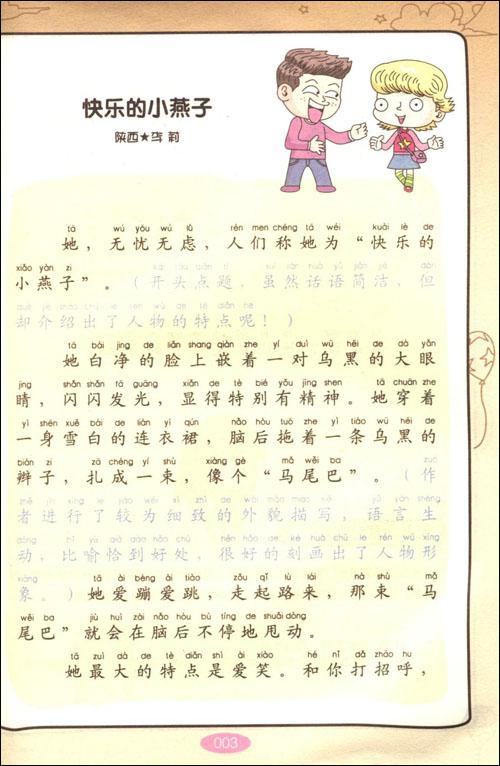 快乐的小燕子
陕西★ 莉
tā wú yōu wú lǜ rén men chēng tā wéi kuài lè de
她，无忧无虑，人们称她为“快乐的
xiǎo yàn zi kāi tóu diǎn tí suī rán huà yǔ jiǎn jié dàn
小燕子”。（开头点题，虽然话语简洁，但
què jiè shào chū le rén wù de tè diǎn ne
却介绍出了人物的特点呢！）
tā bái jìng de liǎn shang qiàn zhe yí duì wū hēi de dà yǎn
她白净的脸上嵌着一对乌黑的大眼
jing shǎn shǎn fā guāng xiǎn de tè bié yǒu jīng shen tā chuān zhe
睛，闪闪发光，显得特别有精神。她穿着
yì shēn xuě bái de lián yī qún nǎo hòu tuō zhe yì tiáo wū hēi de
一身雪白的连衣裙，脑后拖着一条乌黑的
biàn zi zā chéng yí shù xiàng gè mǎ wěi ba zuò
辫子，扎成一束，像个“马尾巴”。（作
zhě jìn xíng le jiào wéi xì zhì de wài mào miáo xiě yǔ yán shēng
者进行了较为细致的外貌描写，语言生
dòng bǐ yù qià dào hǎo chù hěn hǎo de kè huà chū le rén wù xíng
动，比喻恰到好处，很好的刻画出了人物形
xiàng tā ài bèng ài tiào zǒu qǐ lù lái nà shù mǎ
象。）她爱蹦爱跳，走起路来，那束“马
wěi ba jiù huì zài nǎo hòu bù tíng de shuǎi dòng
尾巴”就会在脑后不停地甩动。
tā zuì dà de tè diǎn shì ài xiào hé nǐ dǎ zhāo hu
她最大的特点是爱笑。和你打招呼，
003